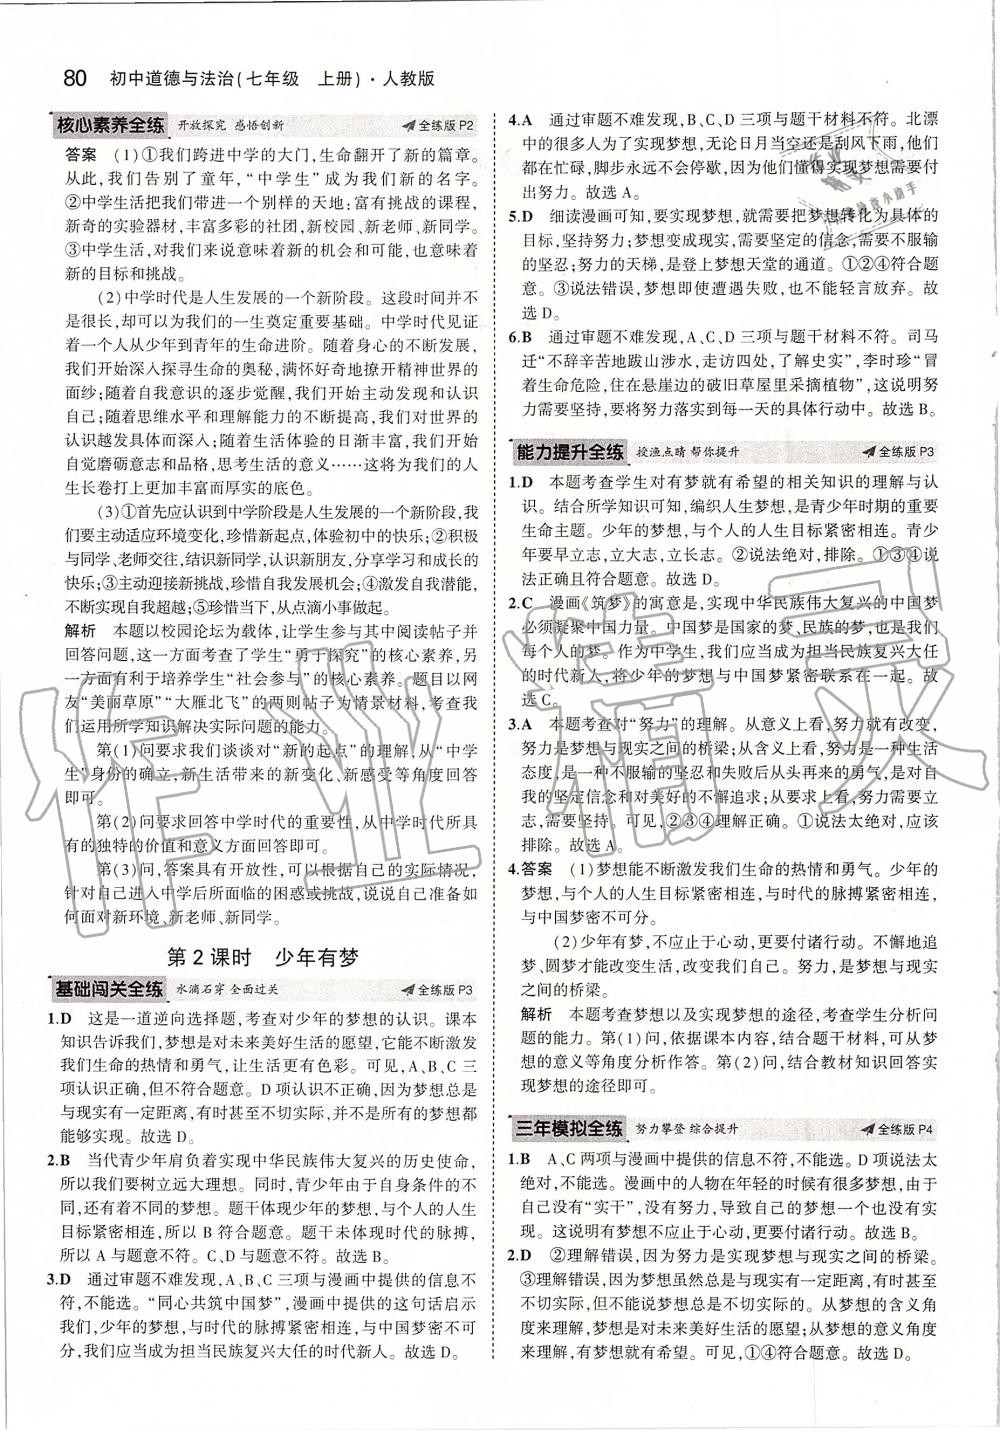 80 初中道德与法治(七年级 上册)·人教版
核心素养全练 开放探究 感悟创新 全练版P2
答案 (1)①我们跨进中学的大门,生命翻开了新的篇章。
从此,我们告别了童年,“中学生”成为我们新的名字。
②中学生活把我们带进一个别样的天地:富有挑战的课程,
新奇的实验器材,丰富多彩的社团,新校园、新老师、新同学。
③中学生活,对我们来说意味着新的机会和可能,也意味着
新的目标和挑战。
(2)中学时代是人生发展的一个新阶段。这段时间并不
是很长,却可以为我们的一生奠定重要基础。中学时代见证
着一个人从少年到青年的生命进阶。随着身心的不断发展,
我们开始深入探寻生命的奥秘,满怀好奇地撩开精神世界的
面纱;随着自我意识的逐步觉醒,我们开始主动发现和认识
自己;随着思维水平和理解能力的不断提高,我们对世界的
认识越发具体而深刻;随着生活体验的日渐丰富,我们开始
自觉磨砺意志和品格,思考生活的意义……这将为我们的人
生长卷打上更加丰富而厚实的底色。
(3)①首先应认识到中学阶段是人生发展的一个新阶段,我
们要主动适应环境变化,珍惜新起点,体验初中的快乐;②积极
与同学、老师交往,结识新同学,认识新朋友,分享学习和成长的
快乐;③主动迎接新挑战,珍惜自我发展机会;④激发自我潜能,
不断实现自我超越;⑤珍惜当下,从点滴小事做起。
解析 本题以校园论坛为载体,让学生参与其中阅读帖子并
回答问题,这一方面考查了学生“勇于探究”的核心素养,另
一方面有利于培养学生“社会参与”的核心素养。题目以网
友“美丽草原”“大雁北飞”的两则帖子为情景材料,考查我
们运用所学知识解决实际问题的能力。
第(1)问要求我们谈谈对“新的起点”的理解,从“中学
生”身份的确立,新生活带来的新变化、新感受等角度回答
即可。
第(2)问要求回答中学时代的重要性,从中学时代所具
有的独特的价值和意义方面回答即可。
第(3)问,答案具有开放性,可以根据自己的实际情况,
针对自己进入中学后所面临的困惑或挑战,说说自己准备如
何面对新环境、新老师、新同学。
第2课时 少年有梦
基础闯关全练 水滴石穿 全面过关 全练版P3
1.D 这是一道逆向选择题,考查对少年的梦想的认识。课本
知识告诉我们,梦想是对未来美好生活的愿望,它能不断激发
我们生命的热情和勇气,让生活更有色彩。可见,A、B、C三
项认识正确,但不符合题意。D项认识不正确,因为梦想总是
与现实有一定距离,有时甚至不切实际,并不是所有的梦想都
能够实现。故选D。
2.B 当代青少年肩负着实现中华民族伟大复兴的历史使命,
所以我们要树立远大理想。同时,青少年由于自身条件的不
同,还有着不同的梦想。题干体现少年的梦想,与个人的人生
目标紧密相连,所以B符合题意。题干未体现时代的脉搏,
所以A与题意不符。C、D与题意不符。故选B。
3.D 通过审题不难发现,A、B、C三项与漫画中提供的信息不
符,不能选。“同心共筑中国梦”,漫画中提供的这句话启示
我们,少年的梦想,与时代的脉搏紧密相连,与中国梦密不可
分,我们应当成为担当民族复兴大任的时代新人。故选D。
4.A 通过审题不难发现,B、C、D三项与题干材料不符。北漂
中的很多人为了实现梦想,无论日月当空还是刮风下雨,他们
都在忙碌,脚步永远不会停歇,因为他们懂得实现梦想需要付
出努力。故选A。
5.D 细读漫画可知,要实现梦想,就需要把梦想转化为具体的
目标,坚持努力;梦想变成现实,需要坚定的信念,需要不服输
的坚忍;努力的天梯,是登上梦想天堂的通道。①②④符合题
意。③说法错误,梦想即使遭遇失败,也不能轻言放弃。故
选D。
6.B 通过审题不难发现,A、C、D三项与题干材料不符。司马
迁“不辞辛苦地跋山涉水,走访四处,了解史实”,李时珍“冒
着生命危险,住在悬崖边的破旧草屋里采摘植物”,这说明努
力需要坚持,要将努力落实到每一天的具体行动中。故选B。
能力提升全练 授渔点睛 帮你提升 全练版P3
1.D 本题考查学生对有梦就有希望的相关知识的理解与认
识。结合所学知识可知,编织人生梦想,是青少年时期的重要
生命主题。少年的梦想,与个人的人生目标紧密相连。青少
年要早立志,立大志,立长志。②说法绝对,排除。①③④说
法正确且符合题意。故选D。
2.C 漫画《筑梦》的寓意是,实现中华民族伟大复兴的中国梦
必须凝聚中国力量。中国梦是国家的梦、民族的梦,也是我们
每个人的梦。作为中学生,我们应当成为担当民族复兴大任
的时代新人,将少年的梦想与中国梦紧密联系在一起。故
选C。
3.A 本题考查对“努力”的理解。从意义上看,努力就有改变,
努力是梦想与现实之间的桥梁;从含义上看,努力是一种生活
态度,是一种不服输的坚忍和失败后从头再来的勇气,是对自
我的坚定信念和对美好的不懈追求;从要求上看,努力需要立
志,需要坚持。可见,②③④理解正确。①说法太绝对,应该
排除。故选A。
4.答案 (1)梦想能不断激发我们生命的热情和勇气。少年的
梦想,与个人的人生目标紧密相连,与时代的脉搏紧密相连,
与中国梦密不可分。
(2)少年有梦,不应止于心动,更要付诸行动。不懈地追
梦、圆梦才能改变生活,改变我们自己。努力,是梦想与现实
之间的桥梁。
解析 本题考查梦想以及实现梦想的途径,考查学生分析问
题的能力。第(1)问,依据课本内容,结合题干材料,可从梦
想的意义等角度分析作答。第(2)问,结合教材知识回答实
现梦想的途径即可。
三年模拟全练 努力攀登 综合提升 全练版P4
1.B A、C两项与漫画中提供的信息不符,不能选。D项说法太
绝对,不能选。漫画中的人物在年轻的时候有很多梦想,由于
自己没有“实干”,没有努力,导致自己的梦想一个也没有实
现。这说明有梦想不应止于心动,更要付诸行动。故选B。
2.D ②理解错误,因为努力是实现梦想与现实之间的桥梁。
③理解错误,因为梦想虽然总是与现实有一定距离,有时甚至
不切实际,但不能说梦想总是不切实际的。从梦想的含义角
度来理解,梦想是对未来美好生活的愿望;从梦想的意义角度
来理解,有梦想就有希望。可见,①④符合题意。故选D。
作业精灵